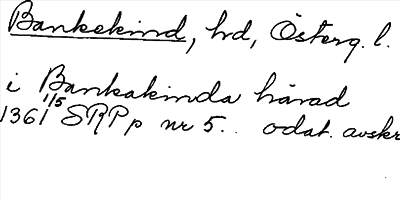 Bankekind, hd, Österg. l.
i Bankakinda härad
1361 1/5 SRPp nr 5. odat. avskr